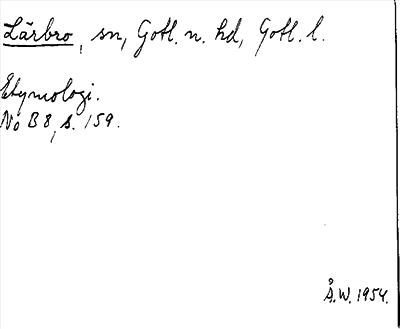 Lärbro, sn, Gotl. n. hd, Gotl. l.
Etymologi.
No B 8, s. 159.
Å. W. 1954.